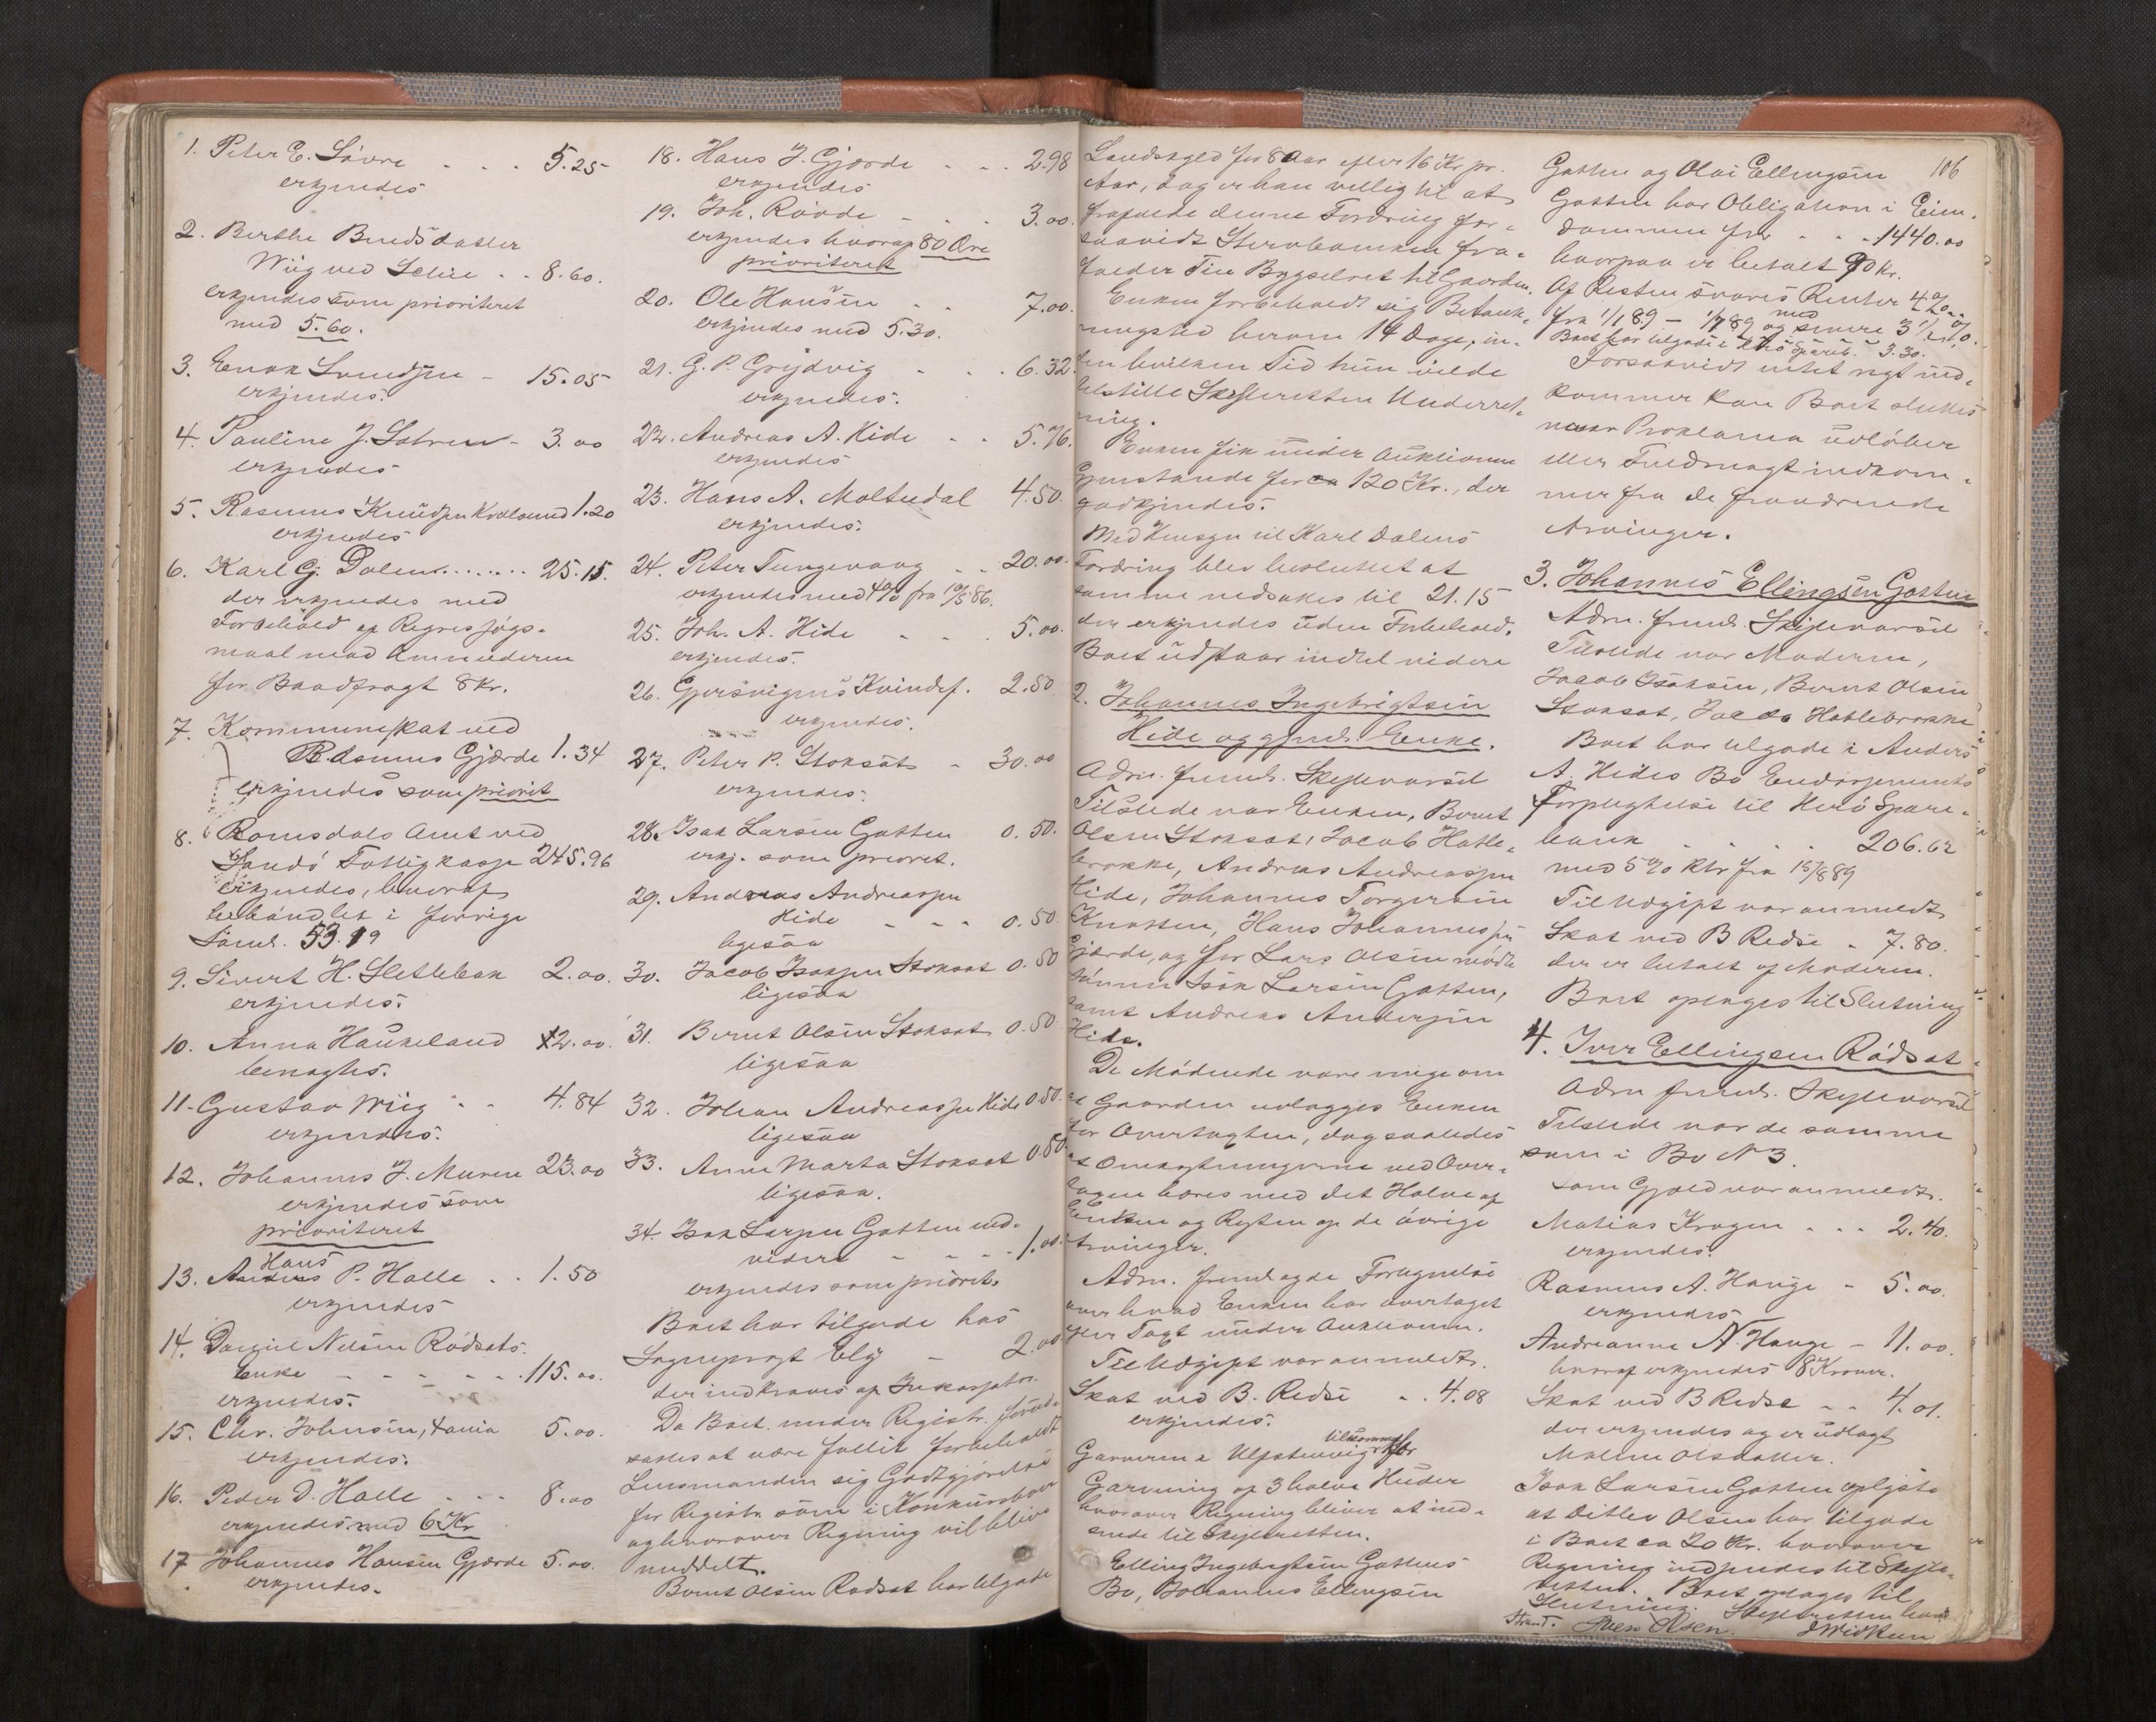 1. Peter E. Løvre - - - 5.25
erkjendes
2. Berthe Knudsdatter
Wiig ved Schie - - 8.60.
erkjendes som prioriteret
med 5.60.
3. Enok Svendsen - 15.05
erkjendes.
4. Pauline J. Sætren - 3.00
erkjendes
5. Rasmus Knudsen Kvalsund 1.20
erkjendes
6. Karl G. Dalen ....... 25.15.
der erkjendes med
Forbehold af Regressøgs-
maal mod Anmelderen
for Baadfragt 8 Kr.
7. Kommuneskat ved
Rasmus Gjærde 1.34
erkjendes som priorit
8. Romsdals Amt ved
Sandø Fattigkasse 245.96
erkjendes, hvoraf
behandlet i forrige
Saml. 53.99
9. Sivert H. Slettebak 2.00.
erkjendes.
10. Anna Haukeland 12.00.
benægtes.
11. Gustav Wiig - - 4.84
erkjendes.
12. Johannes J. Muren 23.00
erkjendes som
prioriteret
Hans
13. Anders P. Halle . . 1.50
erkjendes
14. Daniel Nilsen Rødsets
Enke - - - - - 115.00.
erkjendes.
15. Chr. Johnsen, Tania 5.00.
erkjendes.
16. Peder D. Halle - - - 8.00
erkjendes med 6 Kr
17 Johannes Hansen Gjærde 5.00.
erkjendes.
18. Hans J. Gjærde - - - 2.98
erkjendes
19. Joh. Røvde - - - 3.00.
erkjendes hvoraf 80 Øre
prioriteret
20. Ole Hansen - - 7.00.
erkjendes med 5.30.
21. G. P. Grijdvig - - - 6.32
erkjendes.
22. Andreas A. Hide - - 5.76.
erkjendes
23. Hans A. Moltudal 4.50.
erkjendes.
24. Peter Tungevaag - - 20.00.
erkjendes med 4% fra 10/5 86.
25. Joh. A. Hide - - - 5.00.
erkjendes.
26. Gjersvigens Kvindef. 2.50
erkjendes.
27. Peter P. Stoksæt - 30.00
erkjendes.
28. Isak Larsen Gatten 0.50.
erkj. som prioret.
29. Andreas Andreassen
Hide - - - 0.50.
ligesaa
30. Jacob Isaksen Stoksæt 0.50
ligesaa
31. Bernt Olsen Stoksæt 0.50
ligesaa
32. Johan Andreassen Hide 0.50.
ligesaa
33. Anne Marta Stoksæt 0.50.
ligesaa.
34. Isak Larsen Gatten end-
videre - - - - 1.00.
erkjendes som prioret.
Boet har tilgode hos
Sogneprægt Elij - 2.00
der indkraves af Inkassator.
Da Boet under Registr. forud-
sattes at være fallit forbeholdt
Lensmanden sig Godtgjørelse
for Registr. som i Konkursboer
og hvorover Regning vil blive
meddelt.
Bernt Olsen Rødset har tilgode
Landskyld for 8 Aar efter 16 Kr pr.
Aar, dog er han villig til at
frafalde denne Fordring for-
saavidt Stervboenken fra-
falder sin Bygselret til Gaarden.
Enken forbeholdt sig Betænk-
ningstid herom 14 Dage, in-
den hvilken Tid hun vilde
tilstille Skifteretten Underret-
ning.
Enken fik under Auktionen
Gjenstande for ca 120 Kr., der
godkjendes.
Med Hensyn til Karl Dalens
Fordring blev besluttet at
samme nedsættes til 21.15
der erkjendes uden Forbehold.
Boet udstaar indtil videre
2. Johannes Ingebrigtsen
Hide og gjenl. Enke.
Adm. freml. Skifteværsel
Tilstede var Enken, Bernt
Olsen Stoksæt, Jacob Hatle-
brække, Andreas Andreassen
Hide, Johannes Torgersen
Knotten, Hans Johannessen
Gjærde, og for Lars Olsen mødte
Sønnen Isak Larsen Gatten,
samt Andreas Andersen
Hide.
De Mødende vare enige om
at Gaarden udlægges Enken
for Overtagsten, dog saaledes
at Omkostningerne ved Over-
tagen bæres med det Halve af
Enken og Resten af de øvrige
Arvinger.
Adm. fremlagde Fortegnelse
over hvad Enken har overtaget
efter Taxt under Auktionen.
Til Udgift var anmeldt.
Skat ved B. Redse . . 4.08
erkjendes.
tilkommer
Garveren i Ulfstenvig for
Garvning af 3 halve Huder
hvorover Regning bliver at ind-
sende til Skifteretten.
Elling Ingebrigtsen Gattens
Bo, Johannes Ellingsen
106
Gatten og Olai Ellingsen
Gatten har Obligation i Eien-
dommen for - - - 1440.00
hvorpaa er betalt 90 Kr.
Af Resten svares Renter 4%
fra 1/1 89 - 1/7 89 og med senere 3 1/2 %.
Boet har tilgode i Herø Spareb. 3.30.
Forsaavidt intet nyt ind-
kommer kan Boet sluttes
naar Proklama udløber
eller Fuldmagt indkom-
mer fra de fraværende
Arvinger.
3. Johannes Ellingsen Gatten
Adm. freml. Skifteværsel
Tilstede var Moderen,
Jacob Isaksen, Bernt Olsen
Stoksæt, Jacob Hatlebrække
Boet har tilgode i Anders
A. Hides Bo Endossements
Forpligtelse til Herø Spare-
bank - - - 206.62
med 5% Rtr fra 15/8 89
Til Udgift var anmeldt
Skat ved B Redse - 7.80.
der er betalt af Moderen.
Boet optages til Slutning
4. Iver Ellingsen Rødsæt.
Adm freml. Skifteværsel
Tilstede var de samme
som i Bo No 3.
Som Gjæld var anmeldt.
Matias Kragen - - - 2.40.
erkjendes.
Rasmus A. Hauge - 5.00.
erkjendes
Andreanne N. Hauge - 11.00.
hvoraf erkjendes 8 Kroner.
Skat ved B Redse - - 4.01.
der erkjendes og er udlagt
Malene Olsdatter.
Isak Larsen Gatten oplyste
at Ditlev Olsen har tilgode
i Boet ca 20 Kr. hvorover
Regning indsendes til Skifte-
retten. Boet optages til
Slutning. Skifteretten hævet
Strand. Olsen.